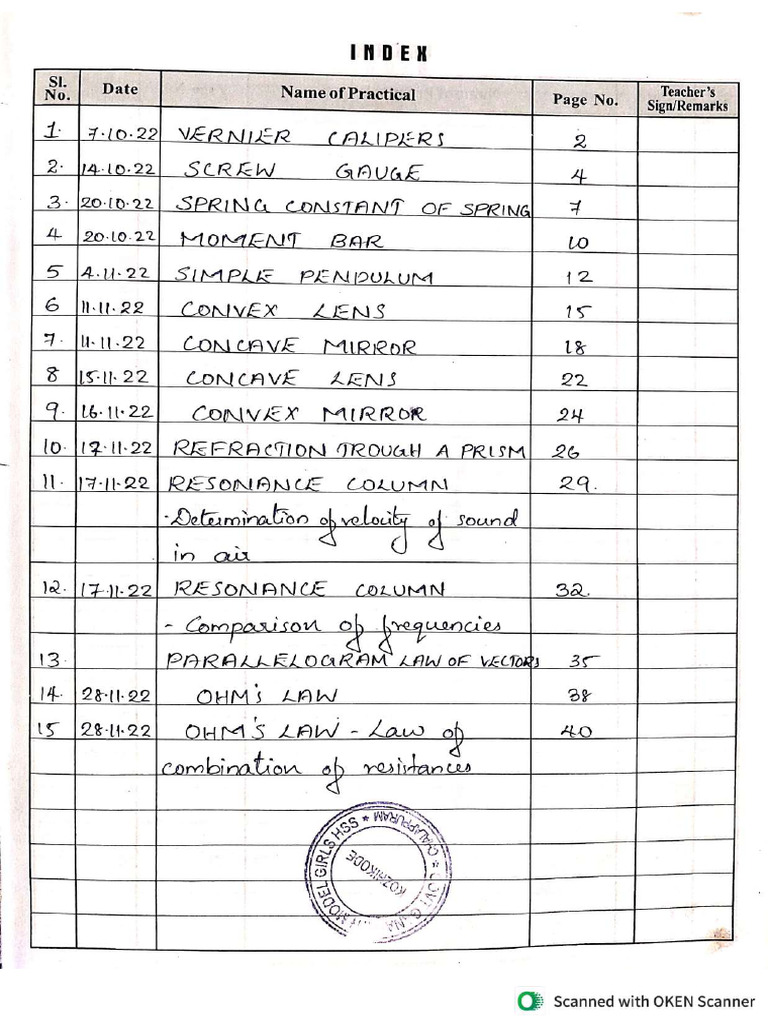 INDEX
Sl. No. Date Name of Practical Page No. Teacher's Sign/Remarks
1. 7.10.22 VERNIER CALIPERS 2
2. 14.10.22 SCREW GAUGE 4
3. 20.10.22 SPRING CONSTANT OF SPRING 7
4 20.10.22 MOMENT BAR 10
5 4.11.22 SIMPLE PENDULUM 12
6 11.11.22 CONVEX LENS 15
7. 11.11.22 CONCAVE MIRROR 18
8 15.11.22 CONCAVE LENS 22
9. 16.11.22 CONVEX MIRROR 24
10. 17.11.22 REFRACTION TROUGH A PRISM 26
11. 17.11.22 RESONANCE COLUMN 29.
-Determination of velocity of sound
in air
12. 17.11.22 RESONANCE COLUMN 32.
- Comparison of frequencies
13 PARALLELOGRAM LAW OF VECTORS 35
14. 28.11.22 OHM'S LAW 38
15 28.11.22 OHM'S LAW - Law of 40
combination of resistances
MODEL GIRLS HSS * CHALAPPURAM *
KOZHIKODE
Scanned with OKEN Scanner